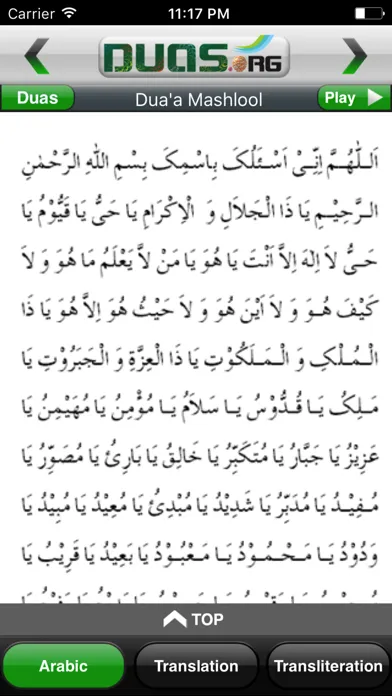 Carrier 11:17 PM
DUAS.ORG
Duas Dua'a Mashlool Play
اَللّٰهُمَّ اِنِّىْ اَسْئَلُكَ بِاسْمِكَ بِسْمِ اللهِ الرَّحْمٰنِ
الرَّحِيْمِ يَا ذَا الْجَلَالِ وَ الْاِكْرَامِ يَا حَىُّ يَا قَيُّوْمُ يَا
حَىُّ لاَ اِلٰهَ اِلاَّ اَنْتَ يَا هُوَ يَا مَنْ لاَّ يَعْلَمُ مَا هُوَ وَ لاَ
كَيْفَ هُوَ وَ لاَ اَيْنَ هُوَ وَ لاَ حَيْثُ هُوَ اِلاَّ هُوَ يَا ذَا
الْمُلْكِ وَ الْمَلَكُوْتِ يَا ذَا الْعِزَّةِ وَ الْجَبَرُوْتِ يَا
مَلِكُ يَا قُدُّوْسُ يَا سَلاَمُ يَا مُؤْمِنُ يَا مُهَيْمِنُ يَا
عَزِيْزُ يَا جَبَّارُ يَا مُتَكَبِّرُ يَا خَالِقُ يَا بَارِئُ يَا مُصَوِّرُ يَا
مُفِيْدُ يَا مُدَبِّرُ يَا شَدِيْدُ يَا مُبْدِئُ يَا مُعِيْدُ يَا مُبِيْدُ يَا
وَدُوْدُ يَا مَحْمُوْدُ يَا مَعْبُوْدُ يَا بَعِيْدُ يَا قَرِيْبُ يَا
TOP
Arabic Translation Transliteration